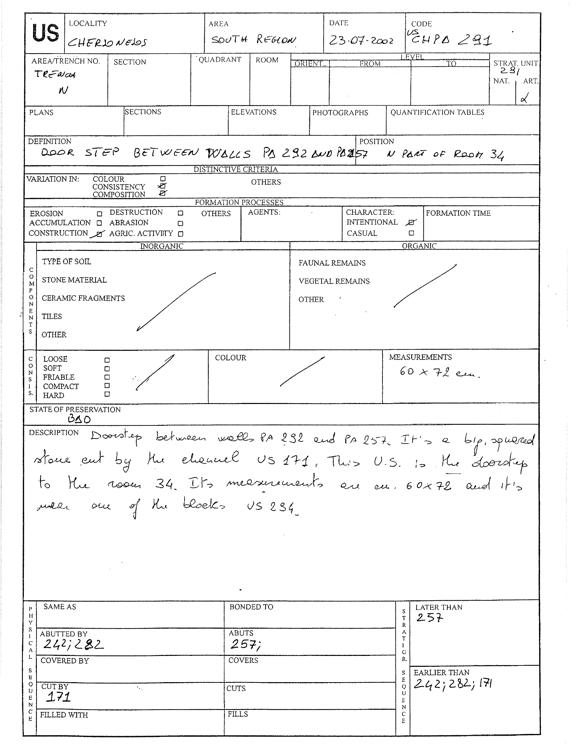 US
LOCALITY
CHERSONESOS
AREA
SOUTH REGION
DATE
23-07-2002
CODE
US
CHPA 291
AREA/TRENCH NO.
TRENCH
N
SECTION
QUADRANT
ROOM
LEVEL
ORIENT. FROM TO
STRAT. UNIT
291
NAT. ART.
PLANS
SECTIONS
ELEVATIONS
PHOTOGRAPHS
QUANTIFICATION TABLES
DEFINITION
DOOR STEP BETWEEN WALLS PA 292 AND PA 257
POSITION
N PART OF ROOM 34
DISTINCTIVE CRITERIA
VARIATION IN: COLOUR
CONSISTENCY
COMPOSITION
OTHERS
FORMATION PROCESSES
EROSION DESTRUCTION OTHERS
ACCUMULATION ABRASION
CONSTRUCTION AGRIC. ACTIVITY
AGENTS:
CHARACTER:
INTENTIONAL
CASUAL
FORMATION TIME
COMPONENTS
INORGANIC
TYPE OF SOIL
STONE MATERIAL
CERAMIC FRAGMENTS
TILES
OTHER
ORGANIC
FAUNAL REMAINS
VEGETAL REMAINS
OTHER
CONSIS.
LOOSE
SOFT
FRIABLE
COMPACT
HARD
COLOUR
MEASUREMENTS
60 x 72 cm.
STATE OF PRESERVATION
BAD
DESCRIPTION Doorstep between walls PA 292 and PA 257. It's a big, squared
stone cut by the channel US 171. This U.S. is the doorstep
to the room 34. Its measurements are cm. 60x72 and it's
near one of the blocks US 234.
PHYSICAL SEQUENCE
SAME AS
BONDED TO
ABUTTED BY
242; 282
ABUTS
257;
COVERED BY
COVERS
CUT BY
171
CUTS
FILLED WITH
FILLS
STRATIGR. SEQUENCE
LATER THAN
257
EARLIER THAN
242; 282; 171